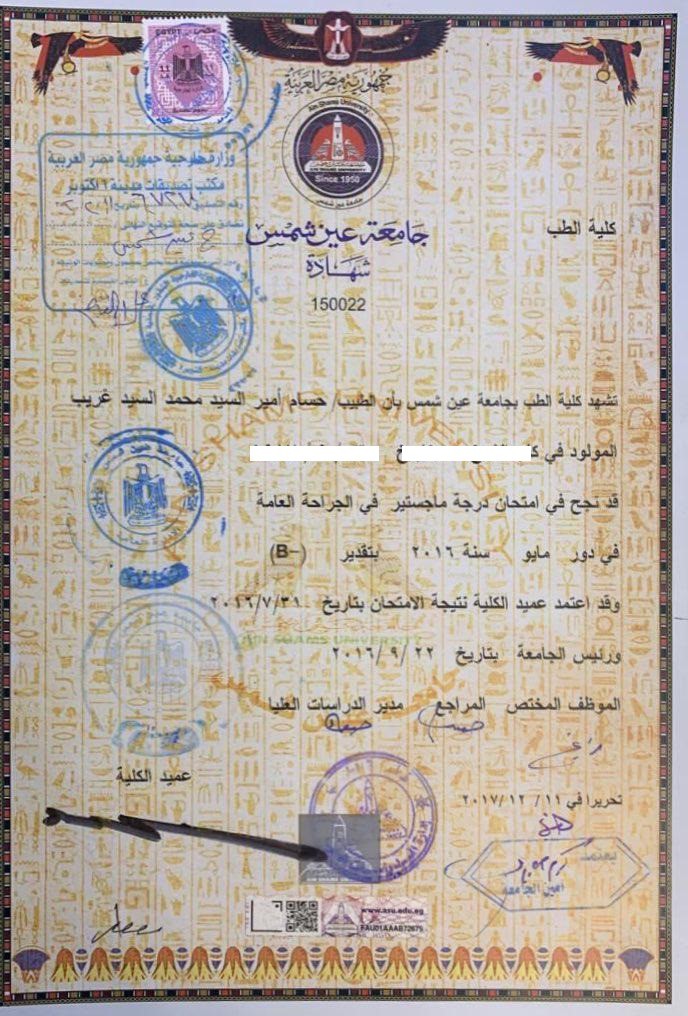 EGYPT
مصر
جمهورية مصر العربية
Ain Shams University
AIN SHAMS UNIVERSITY
Since 1950
جامعة عين شمس
وزارة خارجية جمهورية مصر العربية
مكتب تصديقات مدينة ٦ اكتوبر
كلية الطب
جامعة عين شمس
شهادة
150022
تشهد كلية الطب بجامعة عين شمس بأن الطبيب/ حسام أمير السيد محمد السيد غريب
المولود في
قد نجح في امتحان درجة ماجستير في الجراحة العامة
في دور مايو سنة ٢٠١٦ بتقدير (B-)
وقد اعتمد عميد الكلية نتيجة الامتحان بتاريخ ٢٠١٦/٧/٣١
AIN SHAMS UNIVERSITY
ورئيس الجامعة بتاريخ ٢٢ /٢٠١٦/٩
الموظف المختص المراجع مدير الدراسات العليا
عميد الكلية
تحريرا في ١١/ ١٢ /٢٠١٧
أمين الجامعة
www.asu.edu.eg
FAU01AAAB72679